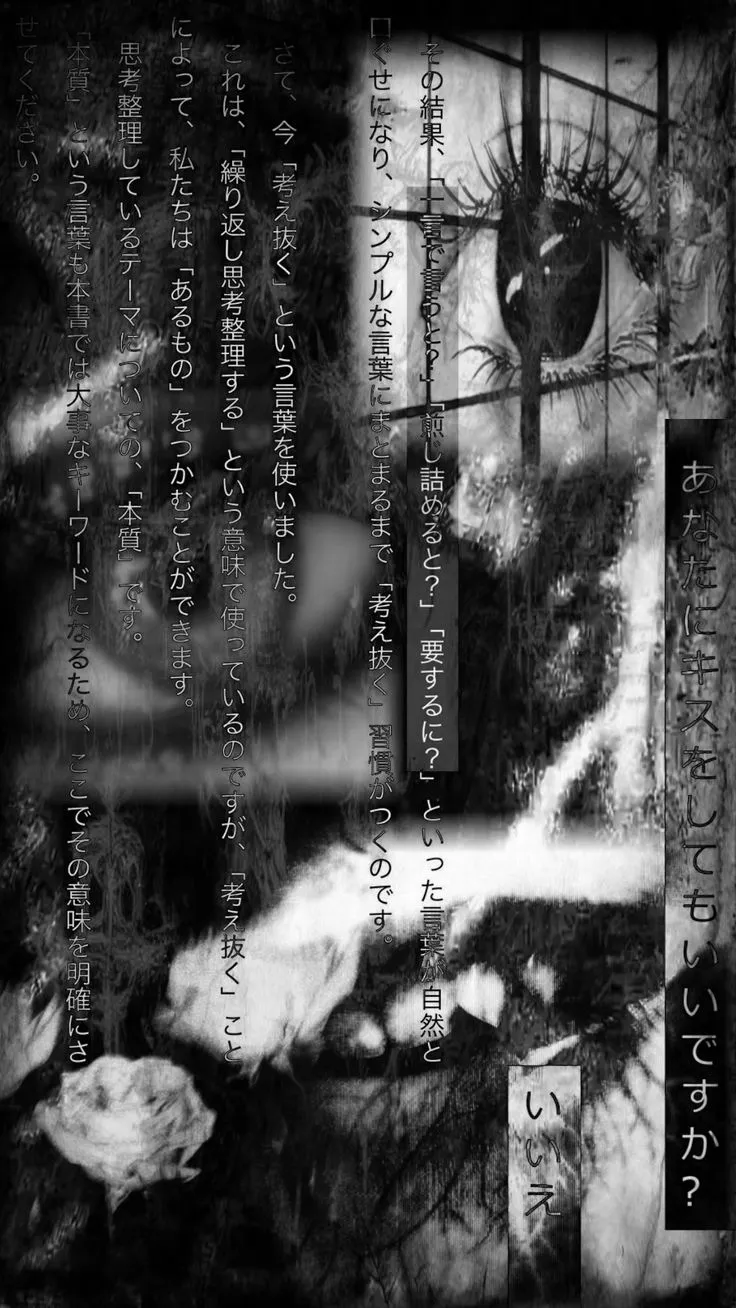 あなたにキスをしてもいいですか?
いいえ
その結果、「一言で言うと?」「煎じ詰めると?」「要するに?」といった言葉が自然と
口ぐせになり、シンプルな言葉にまとまるまで「考え抜く」習慣がつくのです。
さて、今「考え抜く」という言葉を使いました。
これは、「繰り返し思考整理する」という意味で使っているのですが、「考え抜く」こと
によって、私たちは「あるもの」をつかむことができます。
思考整理しているテーマについての、「本質」です。
「本質」という言葉も本書では大事なキーワードになるため、ここでその意味を明確にさ
せてください。